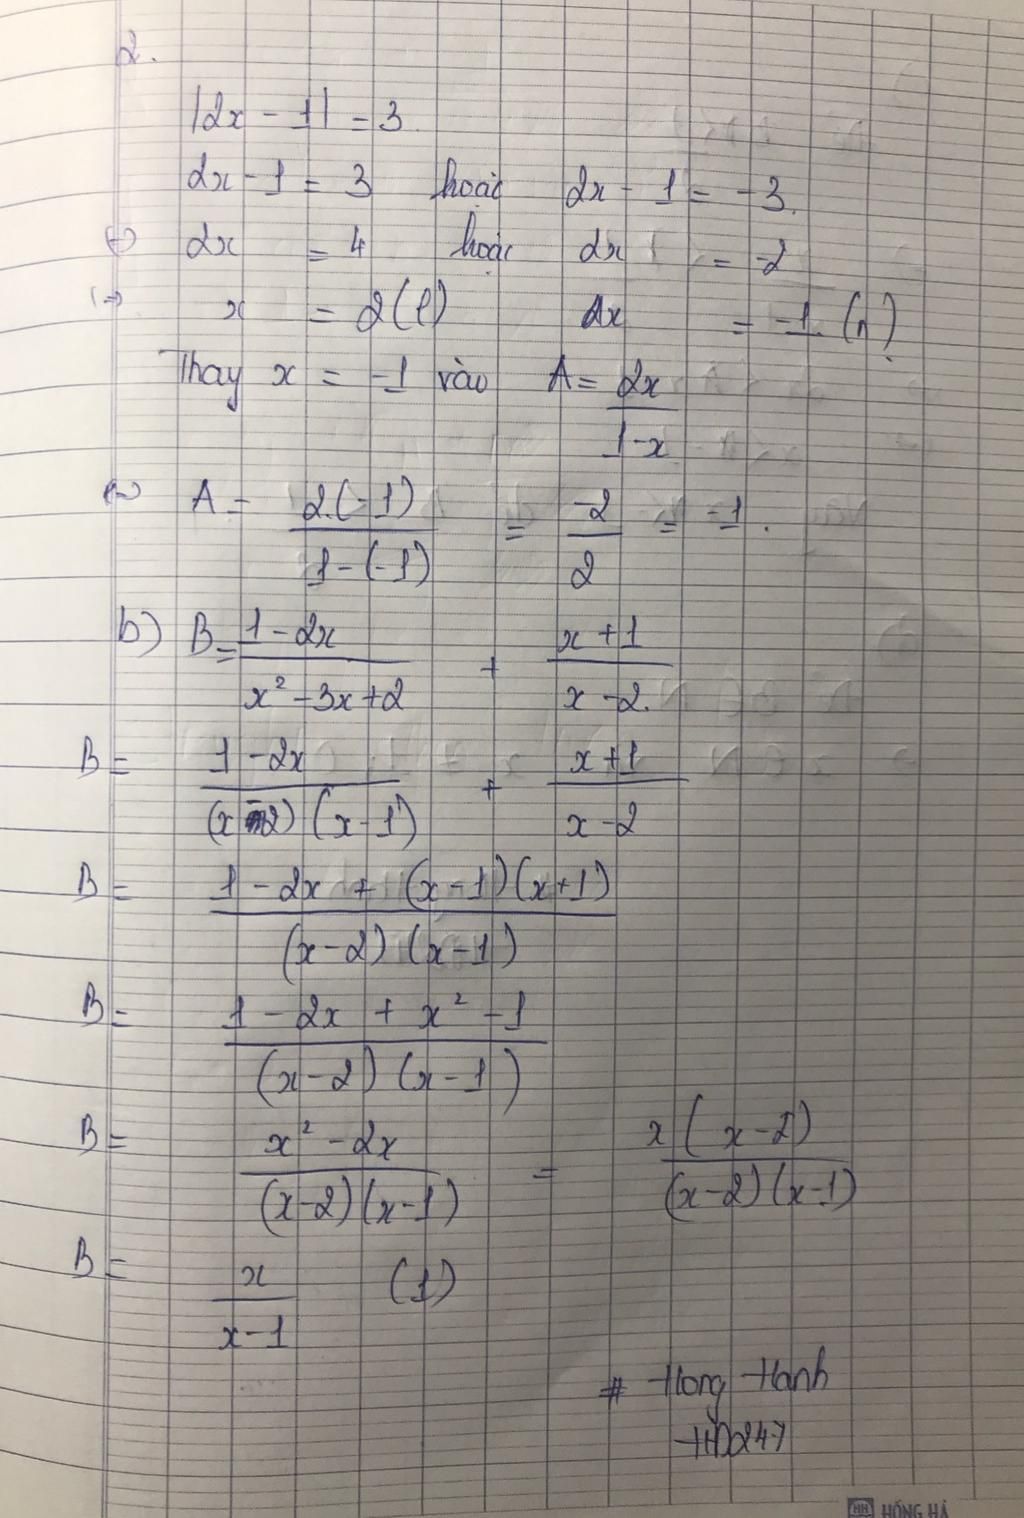 2.
|2x - 1| = 3.
2x - 1 = 3 hoặc 2x - 1 = -3.
(=) 2x = 4 hoặc 2x = -2
(=) x = 2 (l) 2x = -1 (n)
Thay x = -1 vào A = 2x / 1-x
(=) A = 2.(-1) / 1-(-1) = -2 / 2 = -1.
b) B = 1 - 2x / x² - 3x + 2 + x + 1 / x - 2.
B = 1 - 2x / (x - 2) (x - 1) + x + 1 / x - 2
B = 1 - 2x + (x - 1)(x + 1) / (x - 2) (x - 1)
B = 1 - 2x + x² - 1 / (x - 2) (x - 1)
B = x² - 2x / (x - 2)(x - 1) = x ( x - 2) / (x - 2) (x - 1)
B = x / x - 1 (1)
# Hong Hanh
HD247
HỒNG HÀ